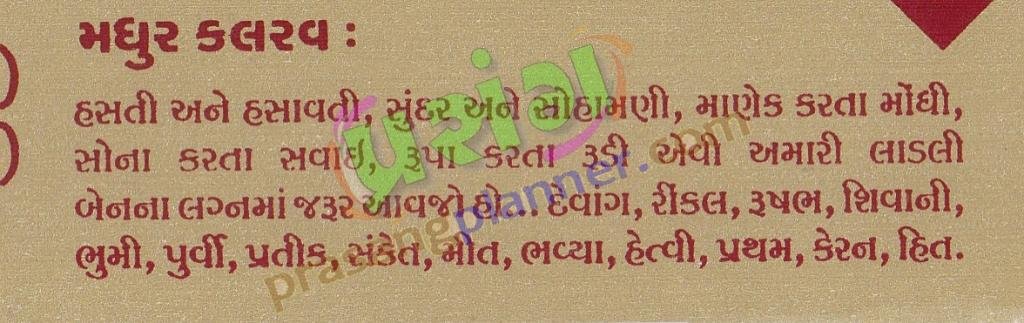 મધુર કલરવ :
હસતી અને હસાવતી, સુંદર અને સોહામણી, માણેક કરતા મોંઘી,
સોના કરતા સવાઇ, રૂપા કરતા રૂડી એવી અમારી લાડલી
બેનના લગ્નમાં જરૂર આવજો હો... દેવાંગ, રીંકલ, રૂષભ, શિવાની,
ભુમી, પુર્વી, પ્રતીક, સંકેત, મીત, ભવ્યા, હેત્વી, પ્રથમ, કેરન, હિત.
પ્રસંગ
prasangplanner.com